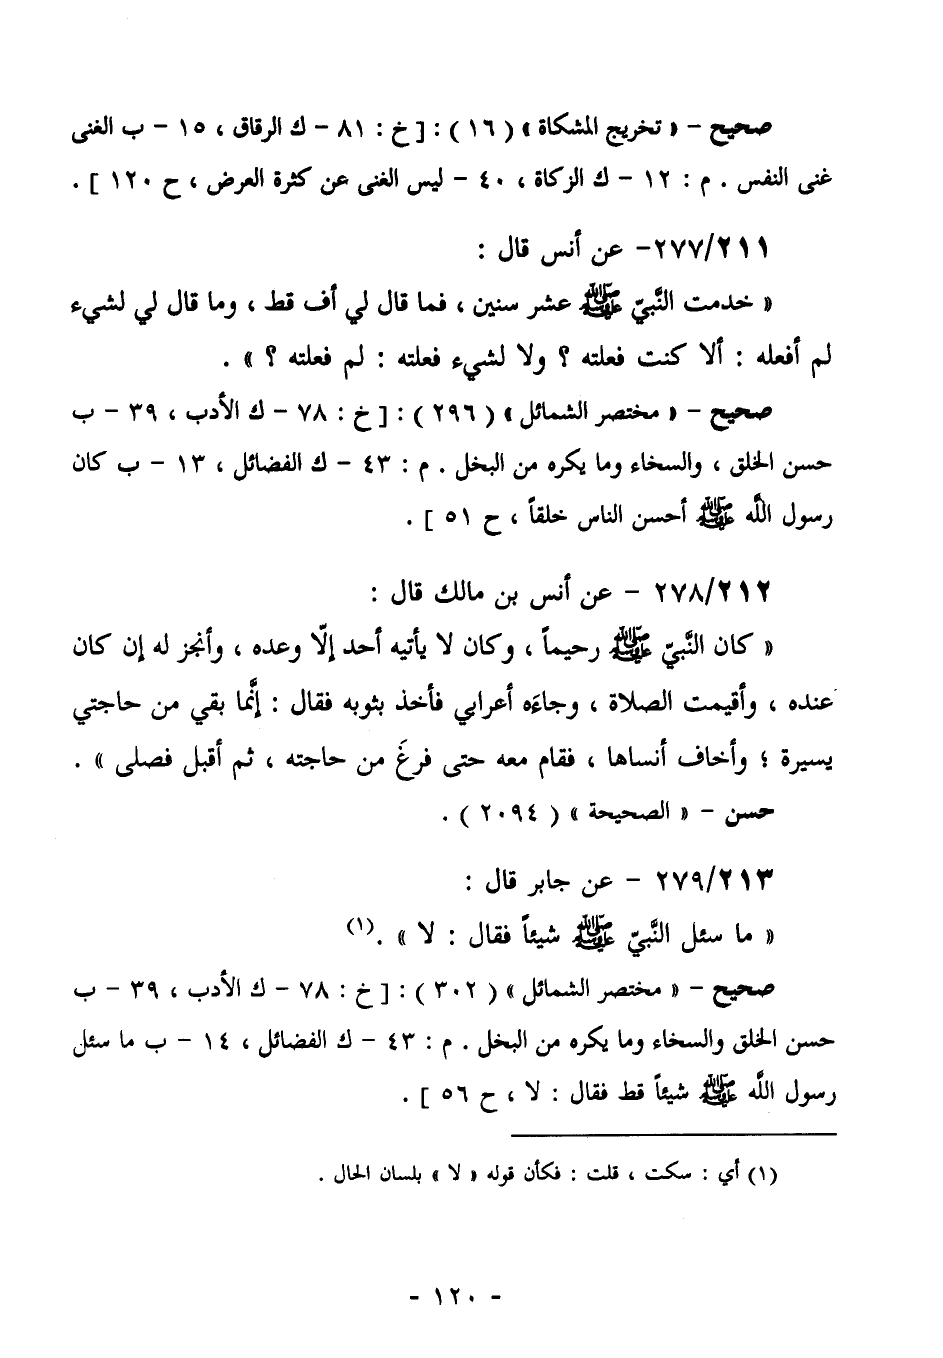 صحيح - « تخريج المشكاة » ( ١٦ ) : [ خ : ٨١ - ك الرقاق ، ١٥ - ب الغنى
غنى النفس . م : ١٢ - ك الزكاة ، ٤٠ - ليس الغنى عن كثرة العرض ، ح ١٢٠ ] .
٢٧٧/٢١١- عن أنس قال :
« خدمت النَّبيّ ﷺ عشر سنين ، فما قال لي أف قط ، وما قال لي لشيء
لم أفعله : ألا كنت فعلته ؟ ولا لشيء فعلته : لم فعلته ؟ » .
صحيح - « مختصر الشمائل » ( ٢٩٦ ) : [ خ : ٧٨ - ك الأدب ، ٣٩ - ب
حسن الخلق ، والسخاء وما يكره من البخل . م : ٤٣ - ك الفضائل ، ١٣ - ب كان
رسول اللَّه ﷺ أحسن الناس خلقاً ، ح ٥١ ] .
٢٧٨/٢١٢ - عن أنس بن مالك قال :
« كان النَّبيّ ﷺ رحيماً ، وكان لا يأتيه أحد إلّا وعده ، وأنجز له إن كان
عنده ، وأقيمت الصلاة ، وجاءَه أعرابي فأخذ بثوبه فقال : إنَّما بقي من حاجتي
يسيرة ؛ وأخاف أنساها ، فقام معه حتى فرغَ من حاجته ، ثم أقبل فصلى » .
حسن - « الصحيحة » ( ٢٠٩٤ ) .
٢٧٩/٢١٣ - عن جابر قال :
« ما سئل النَّبيّ ﷺ شيئاً فقال : لا » .(١)
صحيح - « مختصر الشمائل » ( ٣٠٢ ) : [ خ : ٧٨ - ك الأدب ، ٣٩ - ب
حسن الخلق والسخاء وما يكره من البخل . م : ٤٣ - ك الفضائل ، ١٤ - ب ما سئل
رسول اللَّه ﷺ شيئاً قط فقال : لا ، ح ٥٦ ] .
(١) أي : سكت ، قلت : فكأن قوله « لا » بلسان الحال .
- ١٢٠ -